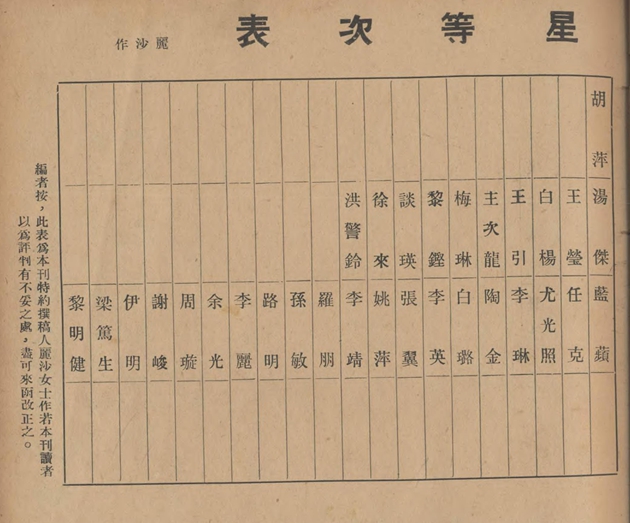 星等次表
麗沙作
胡萍 湯傑 藍蘋
王瑩 任克
白楊 尤光照
王引 李琳
主次龍 陶金
梅琳 白璐
黎鏗 李英
談瑛 張翼
徐來 姚萍
洪警鈴 李靖
羅朋
孫敏
路明
李麗
余光
周璇
謝峻
伊明
梁篤生
黎明健
編者按，此表爲本刊特約撰稿人麗沙女士作若本刊讀者
以爲評判有不妥之處，盡可來函改正之。